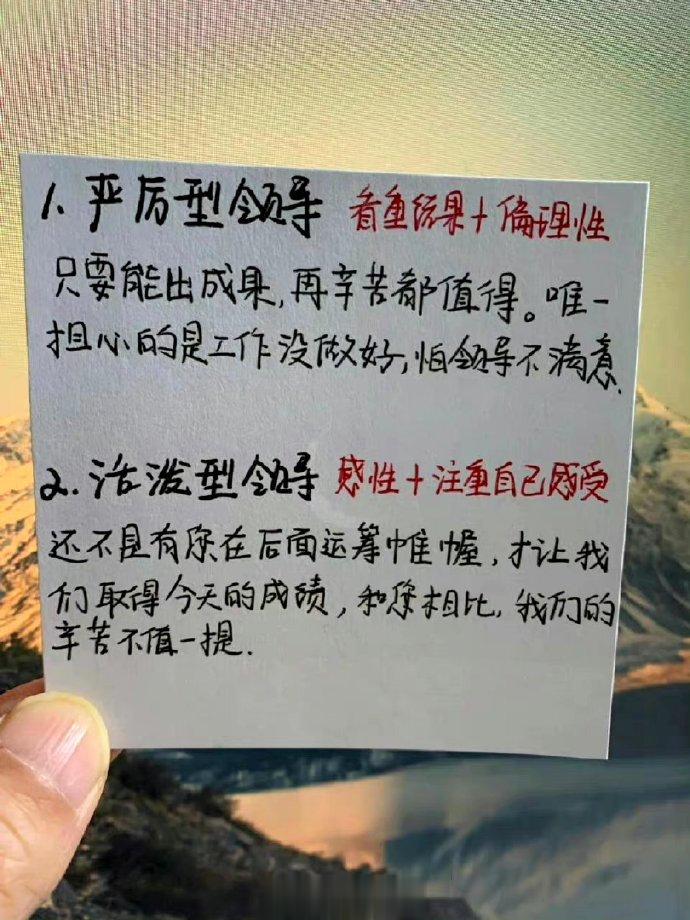 1. 严厉型领导 看重结果+偏理性
只要能出成果,再辛苦都值得。唯一
担心的是工作没做好,怕领导不满意.
2. 活泼型领导 感性+注重自己感受
还不是有您在后面运筹帷幄,才让我
们取得今天的成绩,和您相比,我们的
辛苦不值一提.